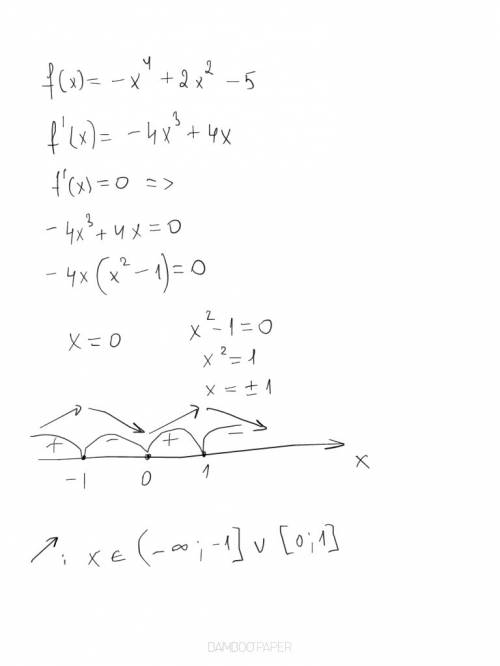 f(x) = -x⁴ + 2x² - 5
f'(x) = -4x³ + 4x
f'(x) = 0 =>
-4x³ + 4x = 0
-4x(x² - 1) = 0
x = 0
x² - 1 = 0
x² = 1
x = ± 1
+ - + -
-1 0 1 x
↗: x ∈ (-∞; -1] ∪ [0; 1]
BAMBOOPAPER